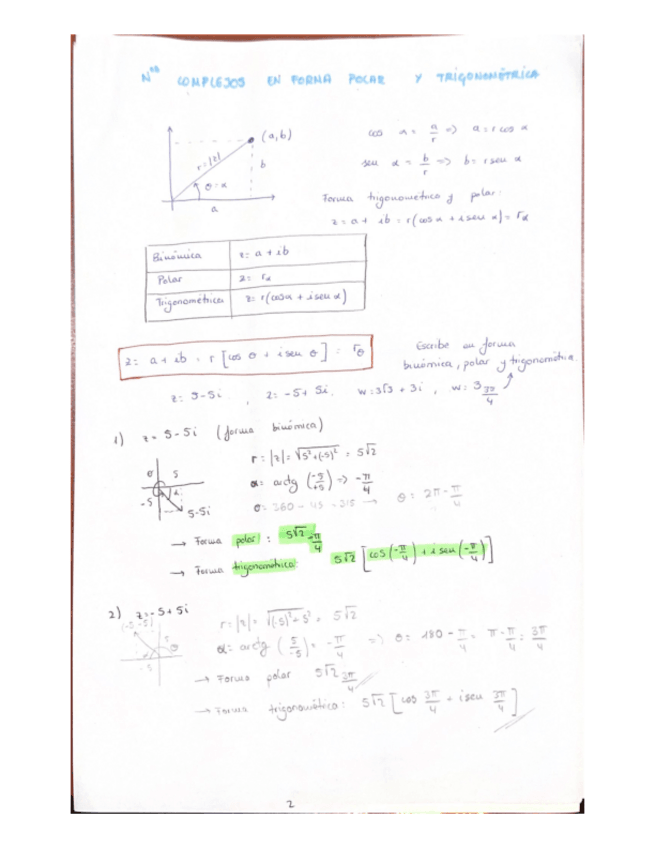 Nºs COMPLEJOS EN FORMA POLAR Y TRIGONOMÉTRICA
(a,b)
r=|z|
b
θ=α
a
cos α = a/r => a = r cos α
seu α = b/r => b = r seu α
Forma trigonométrica y polar:
z = a + ib = r(cos α + i seu α) = rα
Binómica z = a + ib
Polar z = rα
Trigonométrica z = r(cosα + i seu α)
z = a + ib = r [cos θ + i seu θ] = rθ
Escribe en forma
binómica, polar y trigonométrica.
z = 5-5i , z = -5+5i , w = 3√3 + 3i , w = 3
1) z = 5-5i (forma binómica)
θ 5
-5 α
5-5i
r = |z| = √5²+(-5)² = 5√2
α = arctg (-5/+5) => -π/4
θ = 360 - 45 = 315 → θ = 2π - π/4
→ Forma polar : 5√2 -π/4
→ Forma trigonométrica: 5√2 [cos(-π/4) + i seu(-π/4)]
2) z = -5 + 5i
-5
r = |z| = √(-5)²+5² = 5√2
α = arctg (5/-5) = -π/4 => θ = 180 - π/4 = π - π/4 = 3π/4
→ Forma polar 5√2 3π/4
→ Forma trigonométrica: 5√2 [cos 3π/4 + i seu 3π/4]
2